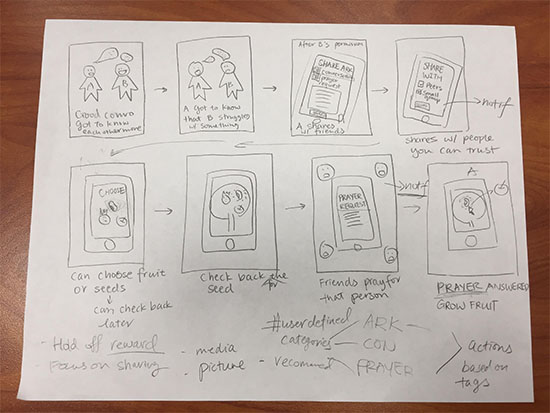 A
B
Good convo
got to know
each other more
A
B
A got to know
that B struggles
w/ something
After B's permission
SHARE ARK
conversation
prayer
request
A shares
w/ friends
SHARE
WITH
Peers
Small
group
notif
shares w/ people
you can trust
CHOOSE
Can choose fruit
or seeds
can check back
later
Check back the
for
seed
PRAYER
REQUEST
notif
Friends pray for
that person
A
PRAYER ANSWERED
GROW FRUIT
- Hold off reward
- Focus on sharing
- media
picture
#userdefined
categories
- recommend
ARK
CON
PRAYER
actions
based on
tags